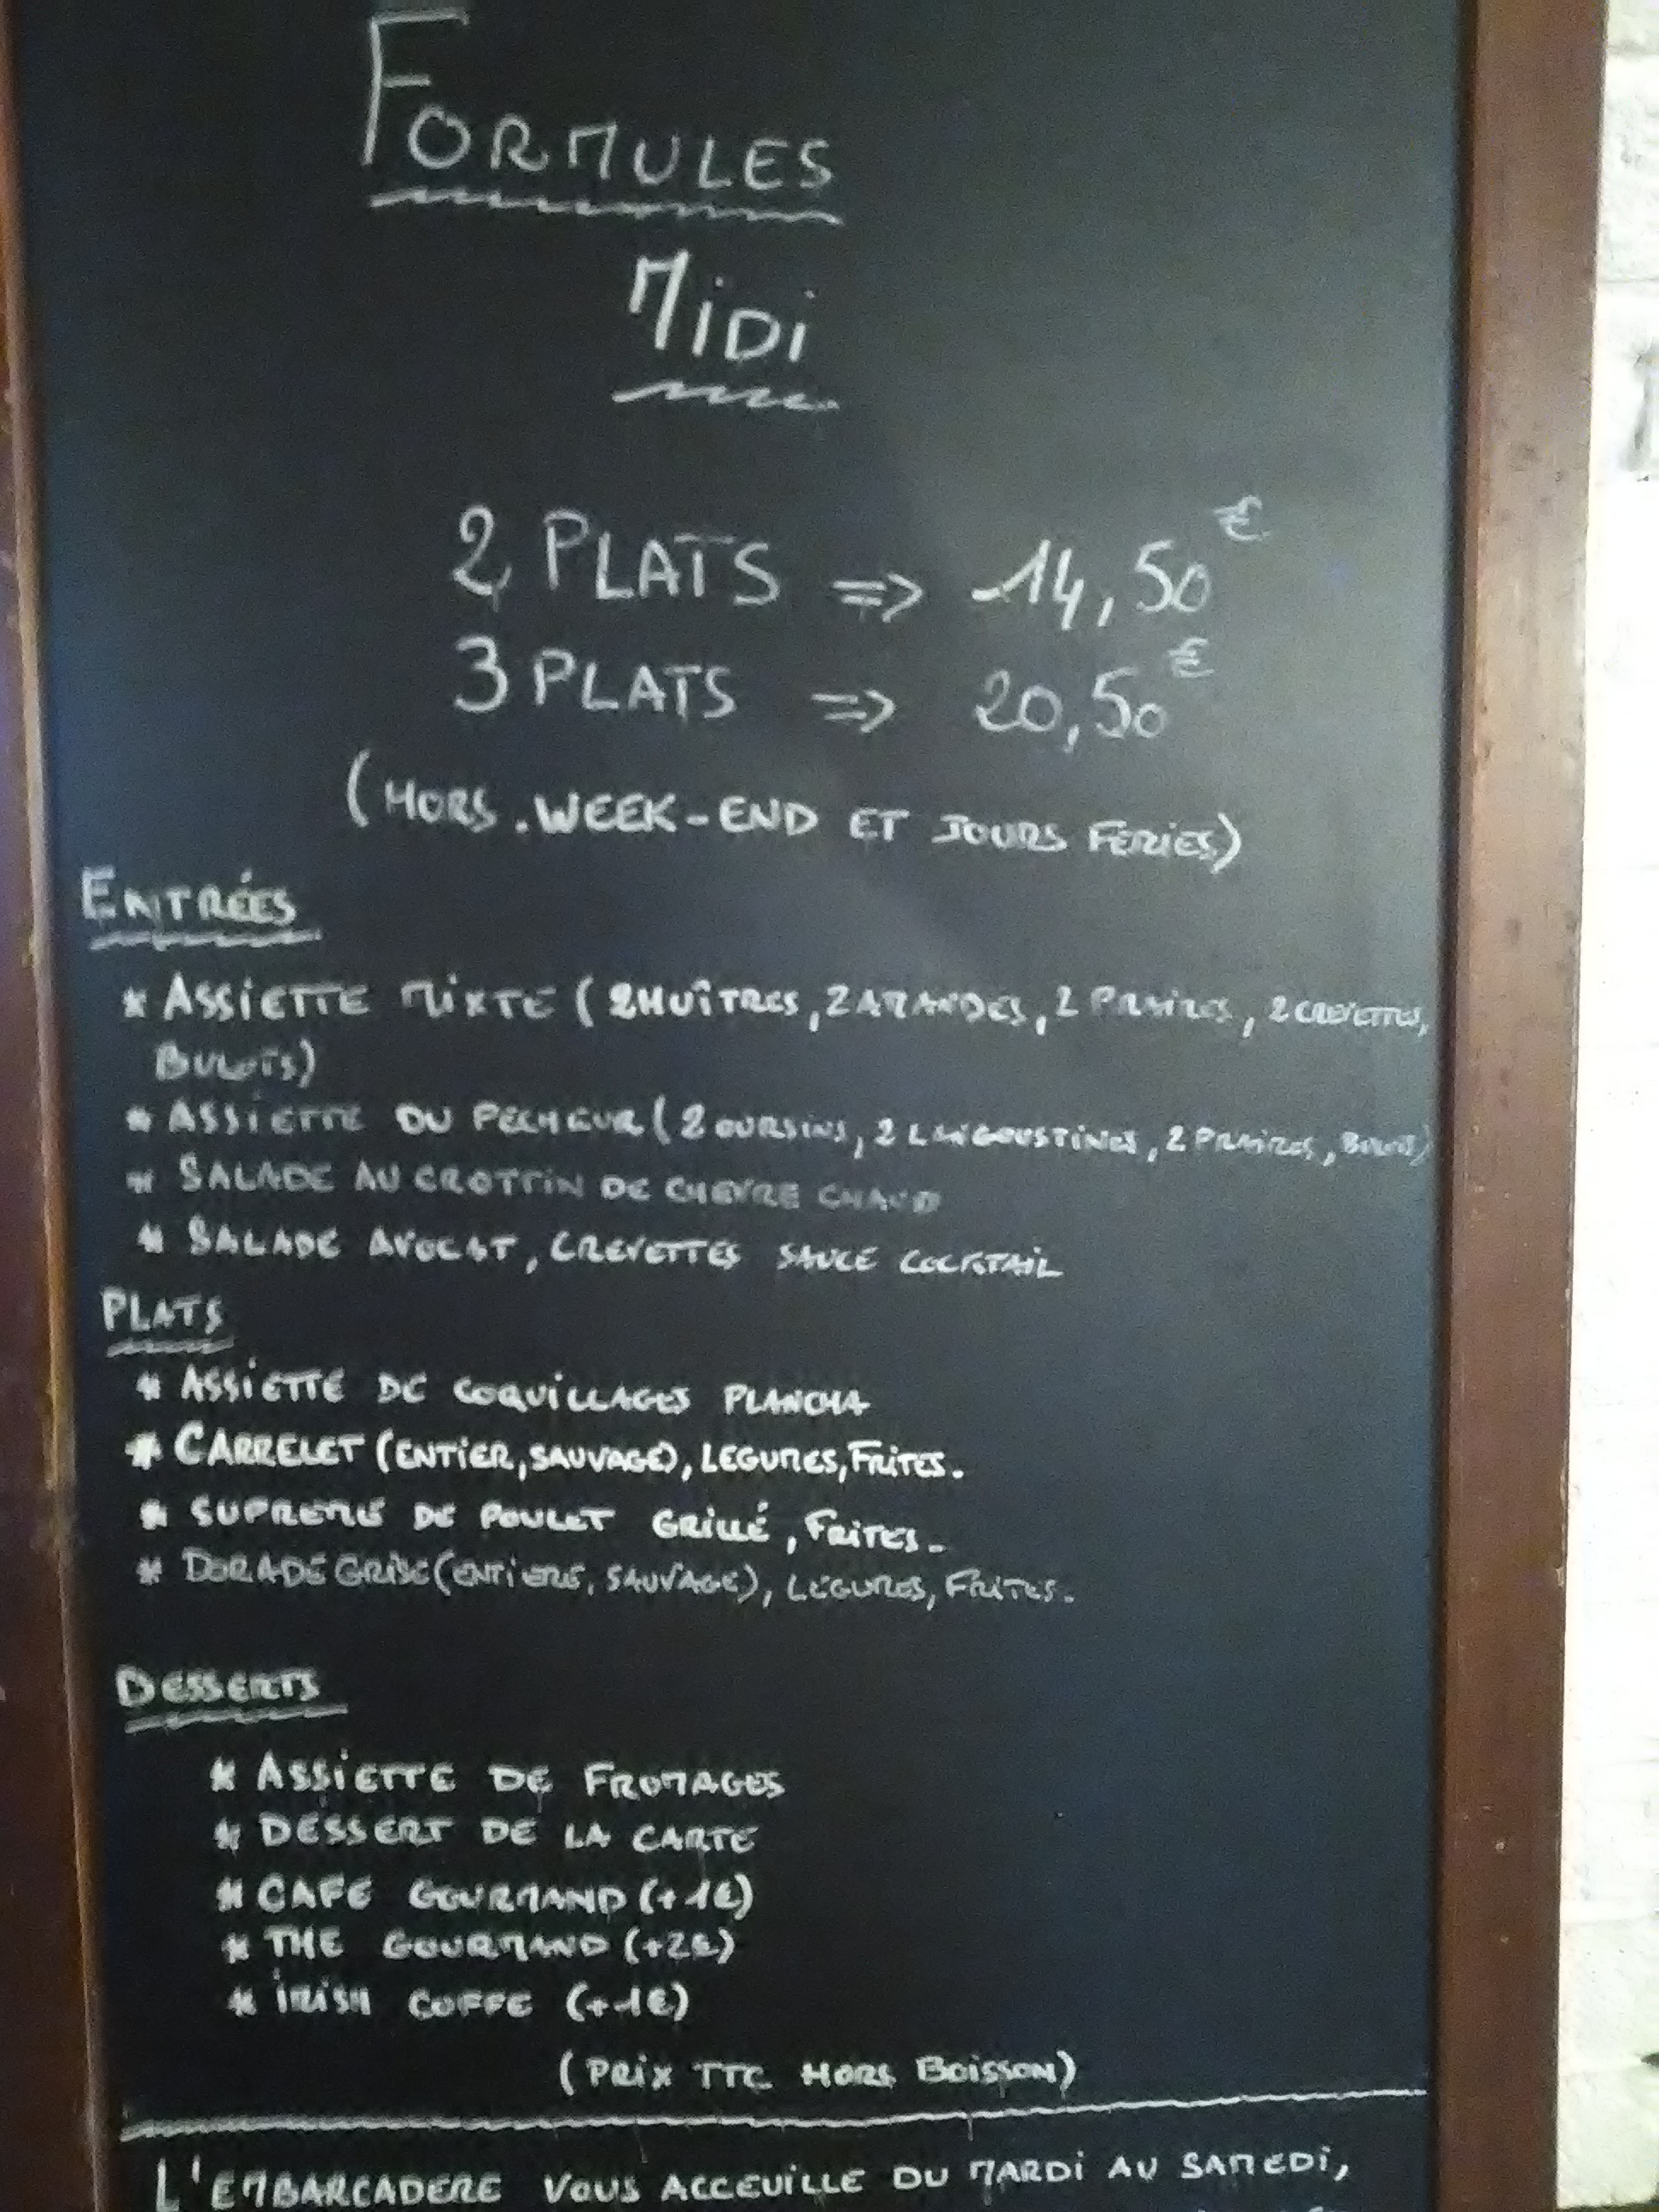 FORMULES
MiDi
2 PLATS => 14,50€
3 PLATS => 20,50€
(HORS.WEEK-END ET JOURS FERIES)
ENTRÉES
* ASSIETTE MIXTE (2 HUÎTRES, 2 AMANDES, 2 PRAIRES, 2 CREVETTES,
BULOTS)
* ASSIETTE DU PECHEUR (2 OURSINS, 2 LANGOUSTINES, 2 PRAIRES, BULOTS)
* SALADE AU CROTTIN DE CHEVRE CHAUD
* SALADE AVOCAT, CREVETTES SAUCE COCKTAIL
PLATS
* ASSIETTE DE COQUILLAGES PLANCHA
* CARRELET (ENTIER, SAUVAGE), LEGUMES, FRITES.
* SUPREME DE POULET GRILLÉ, FRITES.
* DORADE GRISE (ENTIERE, SAUVAGE), LEGUMES, FRITES.
DESSERTS
* ASSIETTE DE FROMAGES
* DESSERT DE LA CARTE
* CAFE GOURMAND (+1€)
* THE GOURMAND (+2€)
* IRISH COFFE (+1€)
(PRIX TTC HORS BOISSON)
L'EMBARCADERE VOUS ACCEUILLE DU MARDI AU SAMEDI,